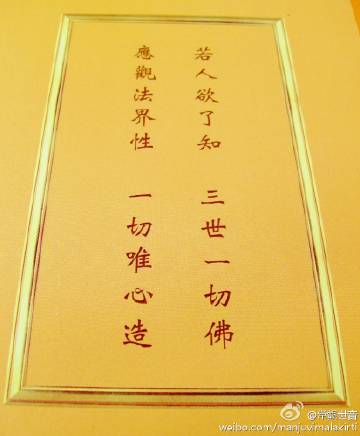 若人欲了知 三世一切佛
應觀法界性 一切唯心造
weibo.com/manjuvimalakirti